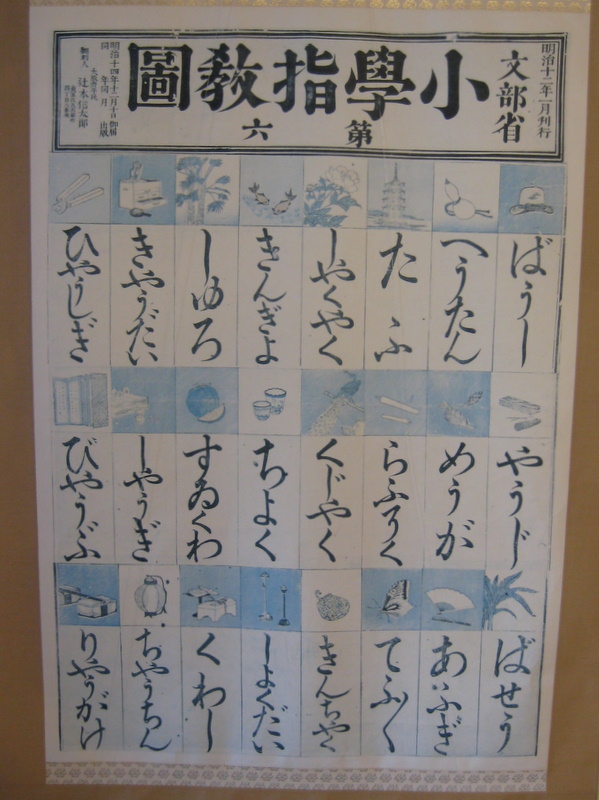 明治十二年一月刊行
文部省
小學指敎圖
第六
明治十四年十二月十日御届
同年同月出版
大阪府平民
飜刻人 辻本信太郎
ばうし
へうたん
たふ
しやくやく
きんぎよ
しゆろ
きやうだい
ひやうしぎ
やうじ
めうが
らふそく
くじやく
ちよく
すゐくわ
しやうぎ
びやうぶ
ばせう
あふぎ
てふ〱
きんちやく
しよくだい
くわし
ちやうちん
りやうがけ